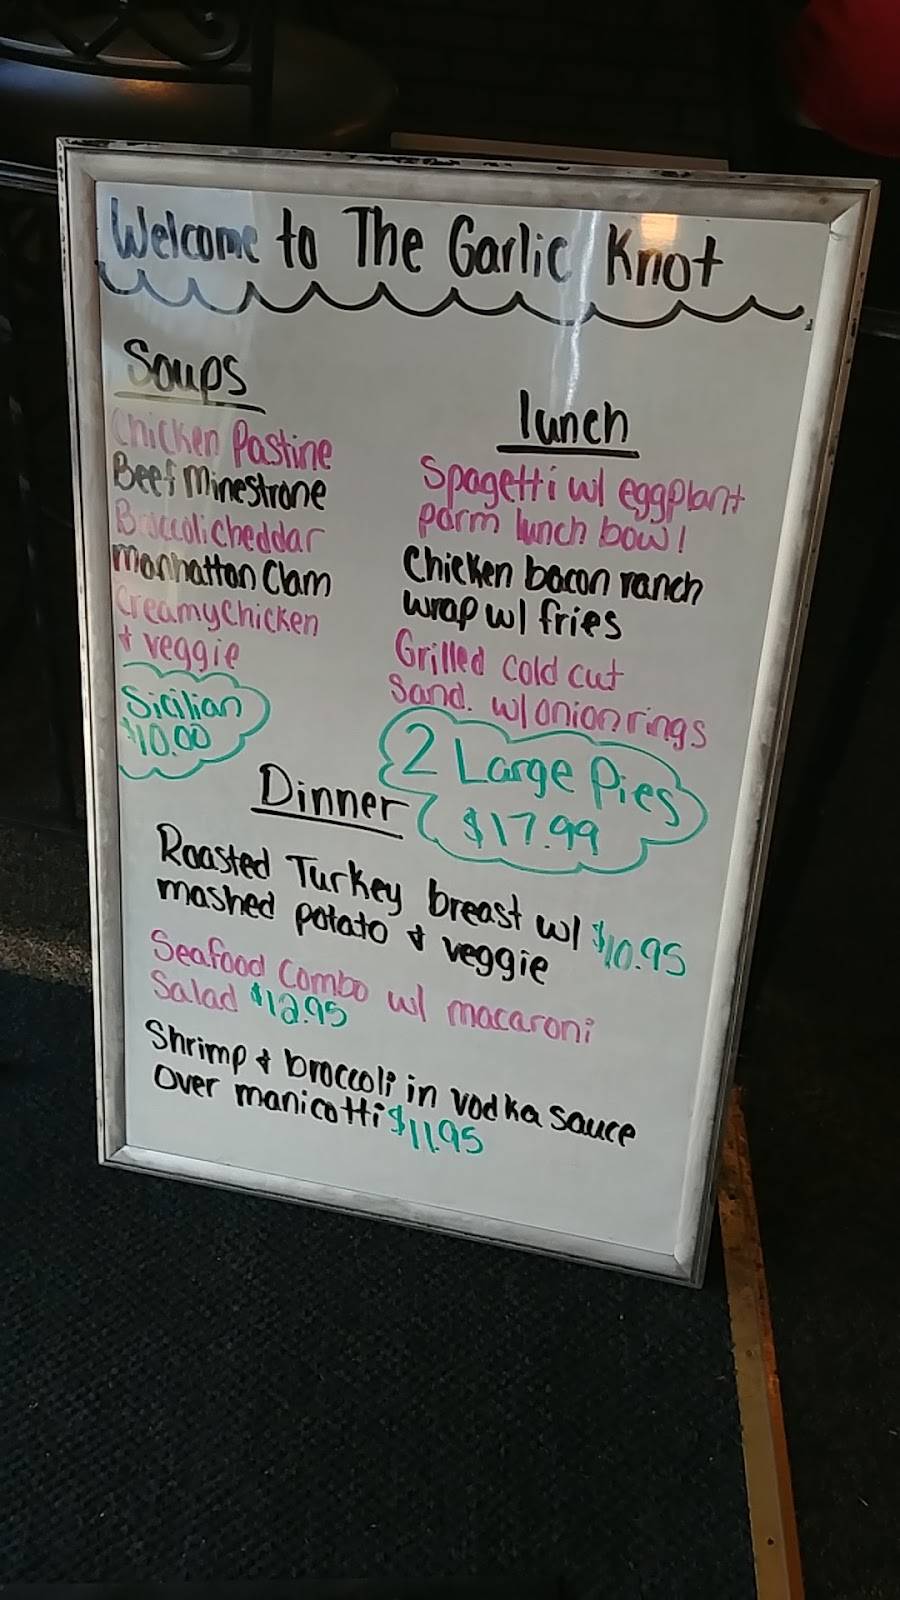 Welcome to The Garlic Knot
Soups
Chicken Pastine
Beef Minestrone
Broccoli cheddar
Manhatton Clam
Creamy Chicken
+ veggie
Sicilian
$10.00
lunch
Spagetti w/ eggplant
parm lunch bowl
Chicken bacon ranch
wrap w/ fries
Grilled cold cut
Sand. w/ onion rings
2 Large Pies
$17.99
Dinner
Roasted Turkey breast w/
mashed potato + veggie $10.95
Seafood Combo w/ macaroni
Salad $12.95
Shrimp + broccoli in vodka sauce
Over manicotti $11.95